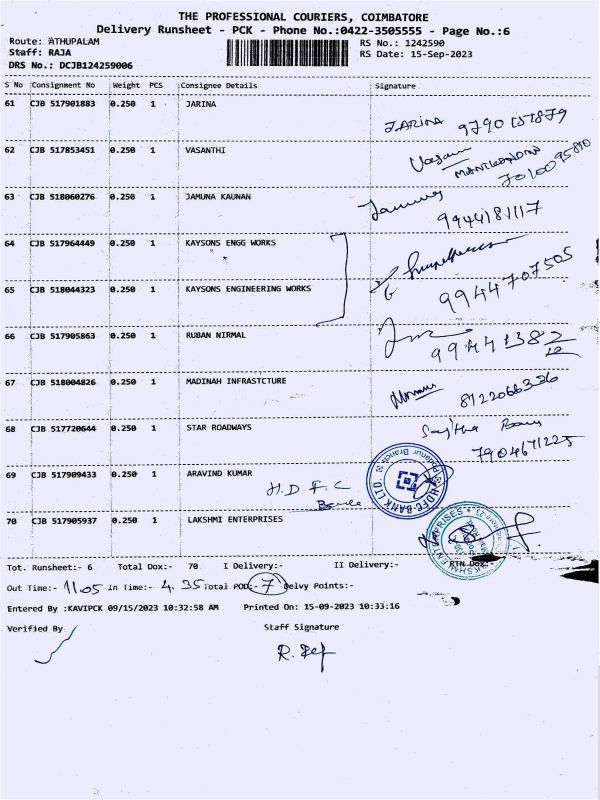 THE PROFESSIONAL COURIERS, COIMBATORE
Delivery Runsheet - PCK - Phone No.:0422-3505555 - Page No.:6
Route: ATHUPALAM
RS No.: 1242590
Staff: RAJA
RS Date: 15-Sep-2023
DRS No.: DCJB124259006
S No Consignment No Weight PCS Consignee Details Signature
61 CJB 517901883 0.250 1 JARINA
JARINA
62 CJB 517853451 0.250 1 VASANTHI
63 CJB 518060276 0.250 1 JAMUNA KAUNAN
9944181117
64 CJB 517964449 0.250 1 KAYSONS ENGG WORKS
65 CJB 518044323 0.250 1 KAYSONS ENGINEERING WORKS
9944707505
66 CJB 517905863 0.250 1 RUBAN NIRMAL
67 CJB 518004826 0.250 1 MADINAH INFRASTCTURE
8122066336
68 CJB 517720644 0.250 1 STAR ROADWAYS
7904671225
69 CJB 517909433 0.250 1 ARAVIND KUMAR
H.D.F.C
HDFC BANK LTD.
70 CJB 517905937 0.250 1 LAKSHMI ENTERPRISES
Tot. Runsheet:- 6 Total Dox:- 70 I Delivery:- II Delivery:- RTN Dox:-
Out Time:- 11.05 In Time:- 4.35 Total POD:- 7 Delvy Points:-
Entered By :KAVIPCK 09/15/2023 10:32:58 AM Printed On: 15-09-2023 10:33:16
Verified By Staff Signature